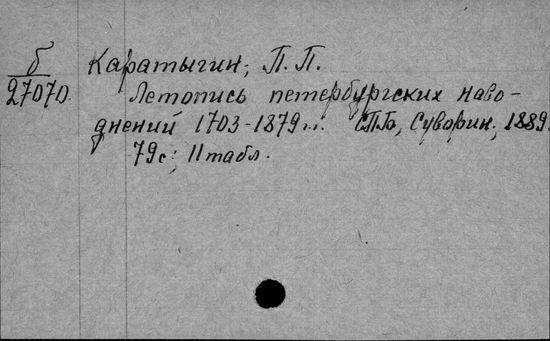 б
27070.
Каратыгин, П. П.
Летопись петербургских наво-
днений 1703-1879 г.г. СПб, Суворин, 1889.
79 с; II табл.